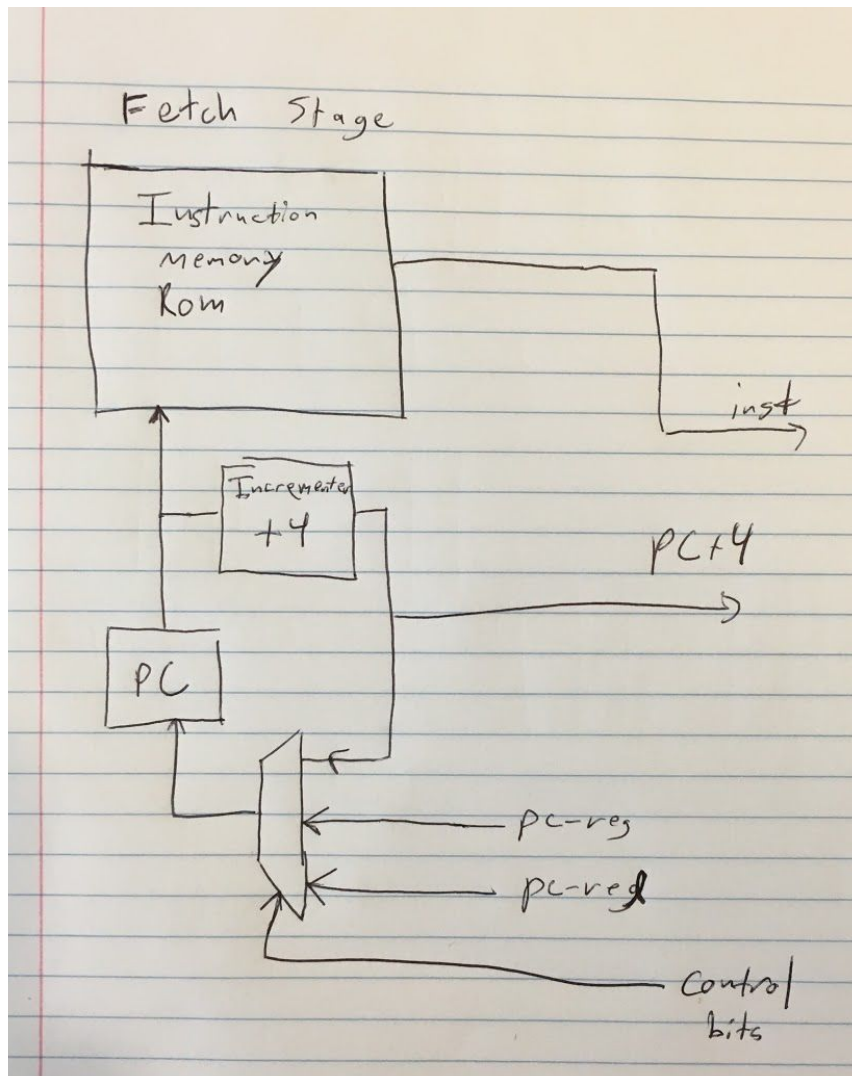 Fetch Stage
Instruction
memory
Rom
inst
Incrementer
+4
PC+4
PC
pc-reg
pc-rel
control
bits